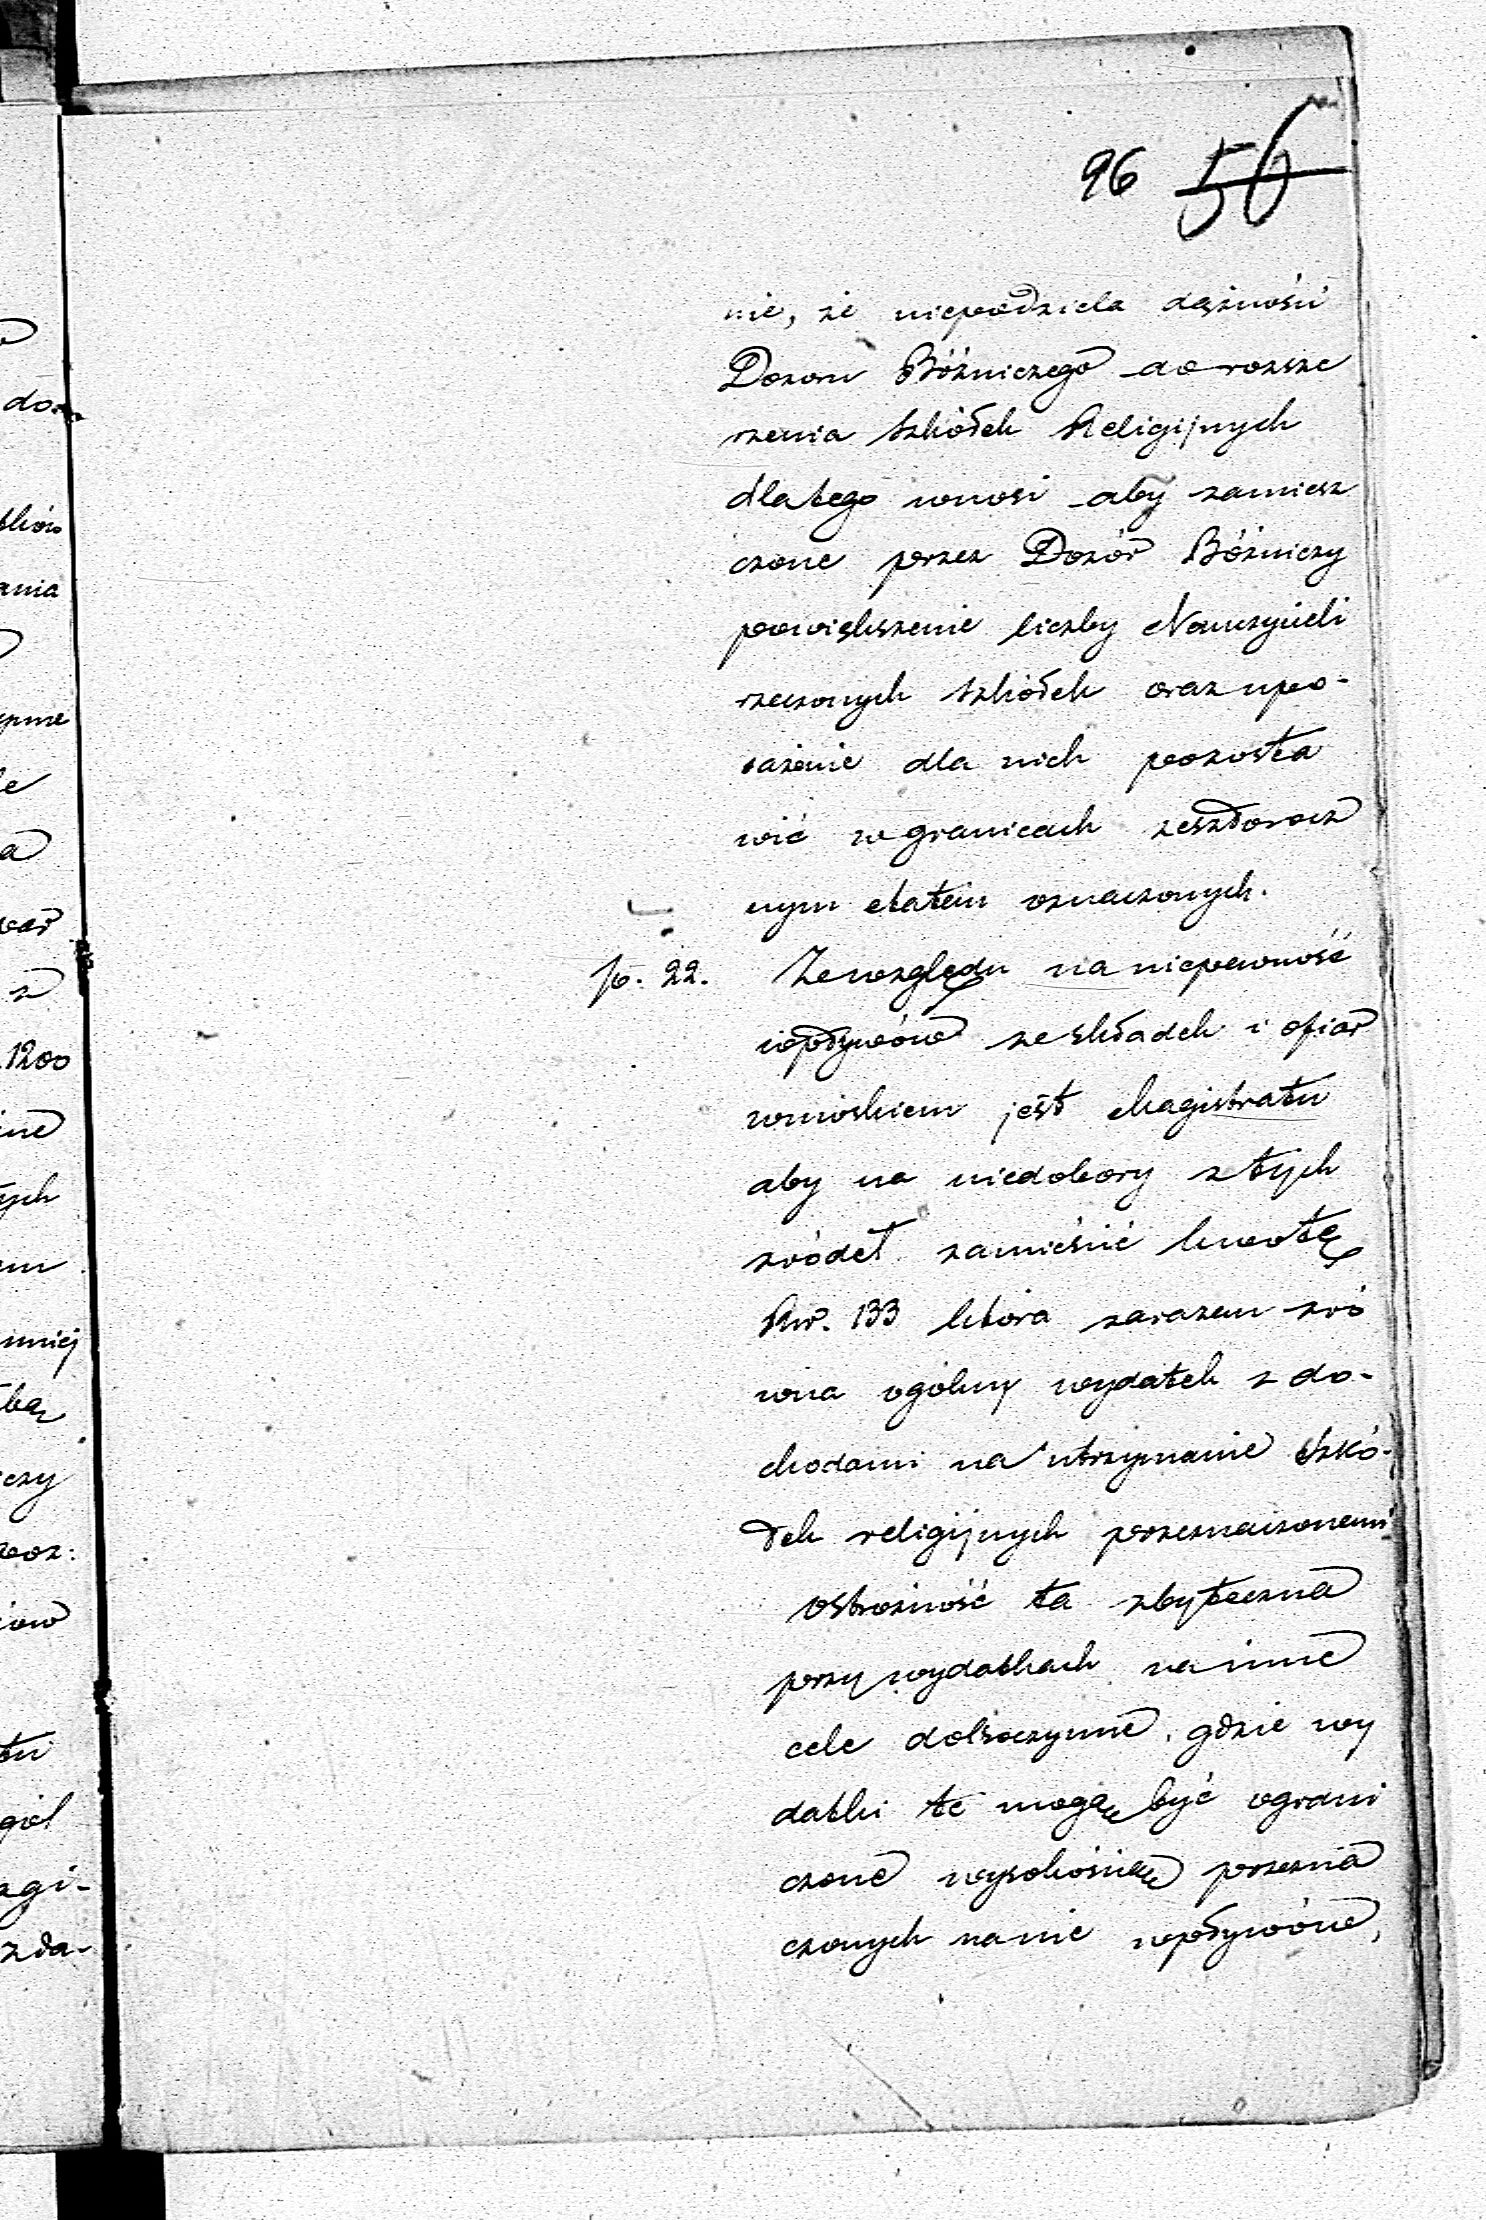 96 56
nie, że niepodziela dążności
Dozoru Bóźniczego do rozsze
rzenia szkółek Religijnych
dlatego wnosi aby zamiesz
czone przez Dozór Bóźniczy
powiększenie liczby Nauczycieli
rzeczonych szkółek oraz upo-
sażenie dla nich pozosta
wić w granicach zeszłorocz
nym etatem oznaczonych.
p. 22. Ze względu na niepewność
wpływów ze składek i ofiar
wnioskiem jest Magistratu
aby na niedobory z tych
źródeł zamieścić kwotę
Rsr. 133 która zarazem zró
wna ogólny wydatek z do-
chodami na utrzymanie szkó-
łek religijnych przeznaczonemi
Ostrożność ta zbyteczna
przy wydatkach na inne
cele dobroczynne, gdzie wy
datki te mogą być ograni
czone wysokością przezna
czonych na nie wpływów,
do
ania
le
1200
ych
mniej
czy
ogół
zda-